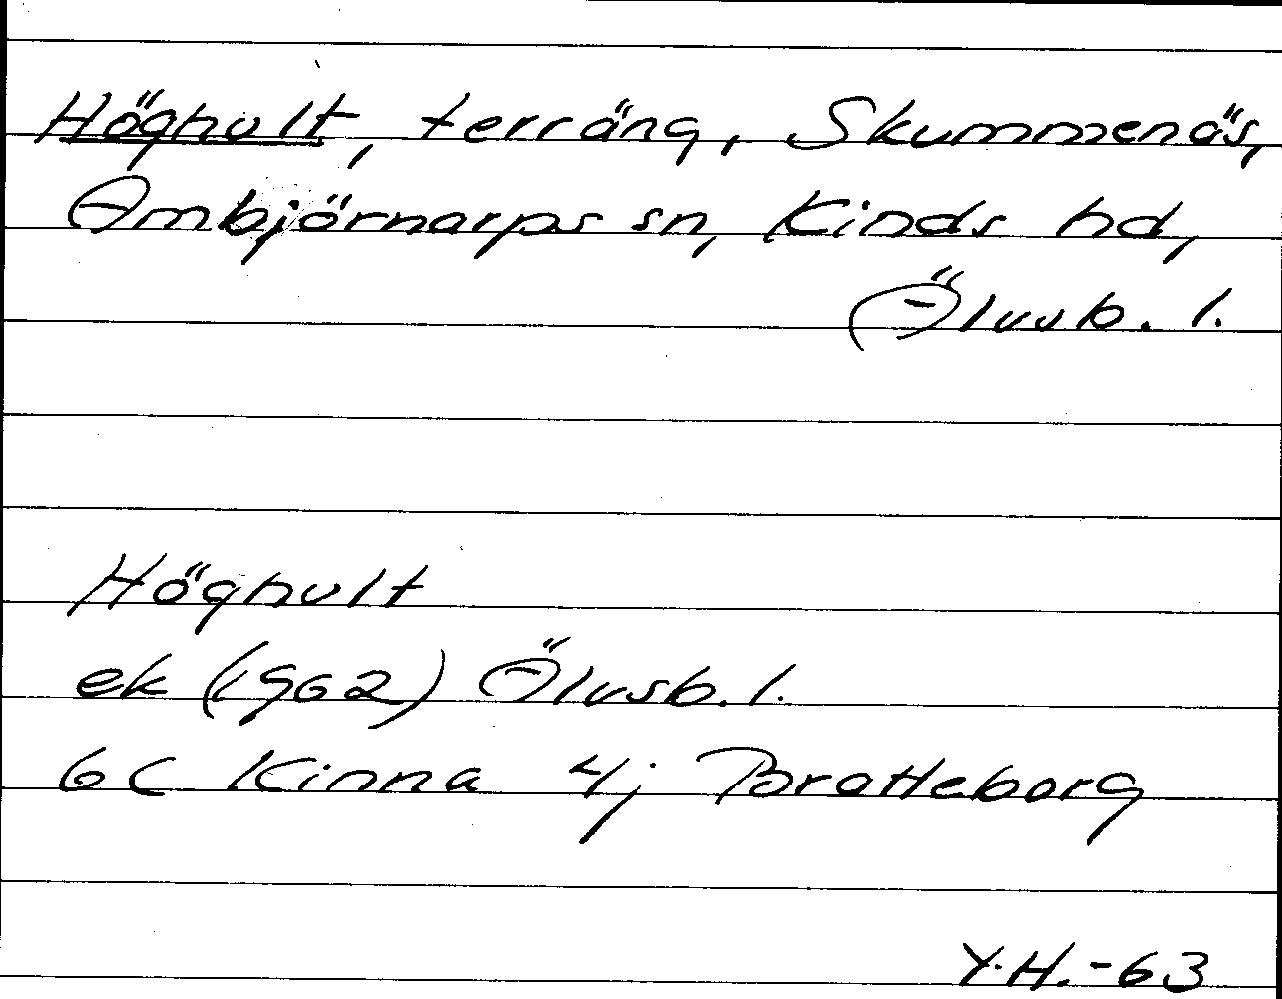 Höghult, terräng, Skummenäs,
Ambjörnarps sn, Kinds hd,
Älvsb. l.
Höghult
ek (1962) Älvsb. l.
6C Kinna 4j Bratteborg
Y.H.-63